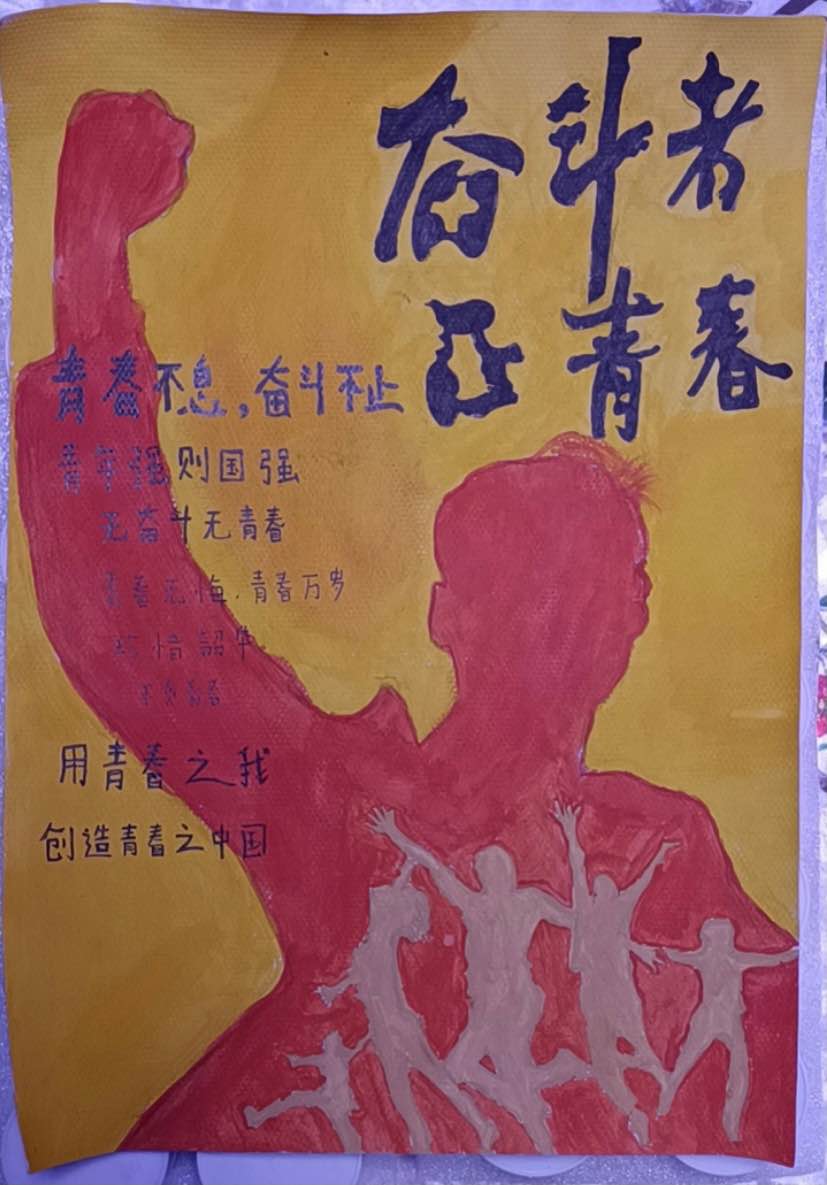 奋斗者
正青春
青春不息,奋斗不止
青年强则国强
无奋斗无青春
青春无悔.青春万岁
珍惜韶华
不负青春
用青春之我
创造青春之中国